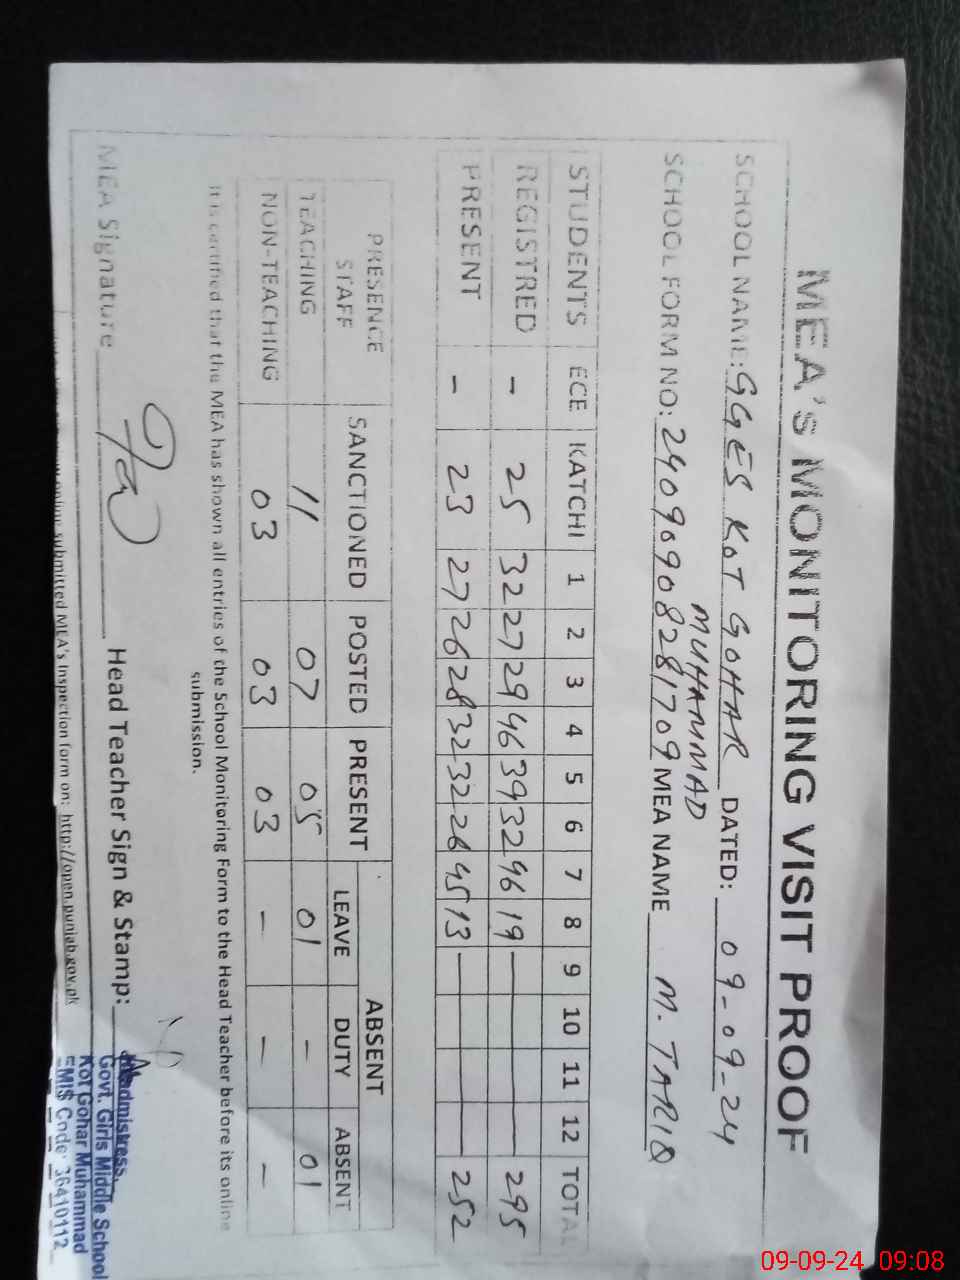 MEA's MONITORING VISIT PROOF
SCHOOL NAME: GGES KOT GOHAR DATED: 09-09-24
MUHAMMAD
SCHOOL FORM NO: 24090908281709 MEA NAME M. TARIQ
STUDENTS ECE KATCHI 1 2 3 4 5 6 7 8 9 10 11 12 TOTAL
REGISTRED - 25 32 27 29 46 39 32 46 19 295
PRESENT - 23 27 26 28 32 32 26 45 13 252
PRESENCE STAFF SANCTIONED POSTED PRESENT ABSENT
LEAVE DUTY ABSENT
TEACHING 11 07 05 01 - 01
NON-TEACHING 03 03 03 - - -
It is certified that the MEA has shown all entries of the School Monitoring Form to the Head Teacher before its online
submission.
MEA Signature Head Teacher Sign & Stamp:
Headmistress
Govt. Girls Middle School
Kot Gohar Muhammad
EMIS Code: 36410112
online submitted MEA's Inspection form on: http://open.punjab.gov.pk
09-09-24 09:08